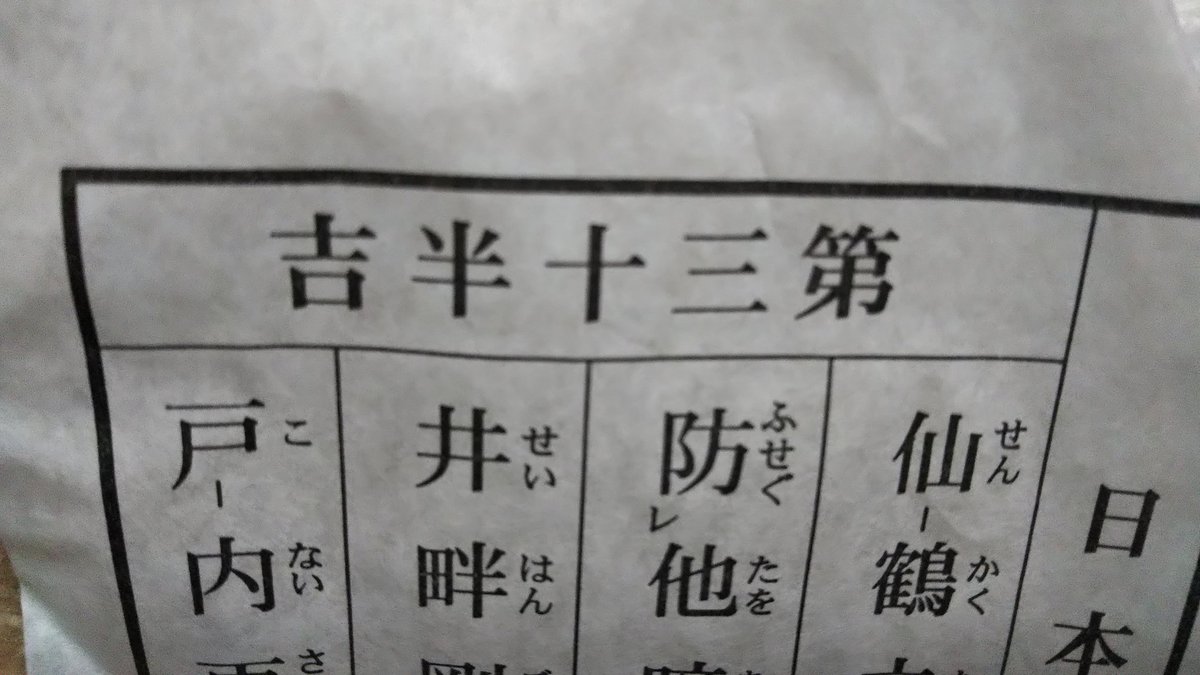 日本
第三十半吉
仙鶴
せんかく
防他
ふせぐたを
レ
井畔
せいはん
戸内
こない